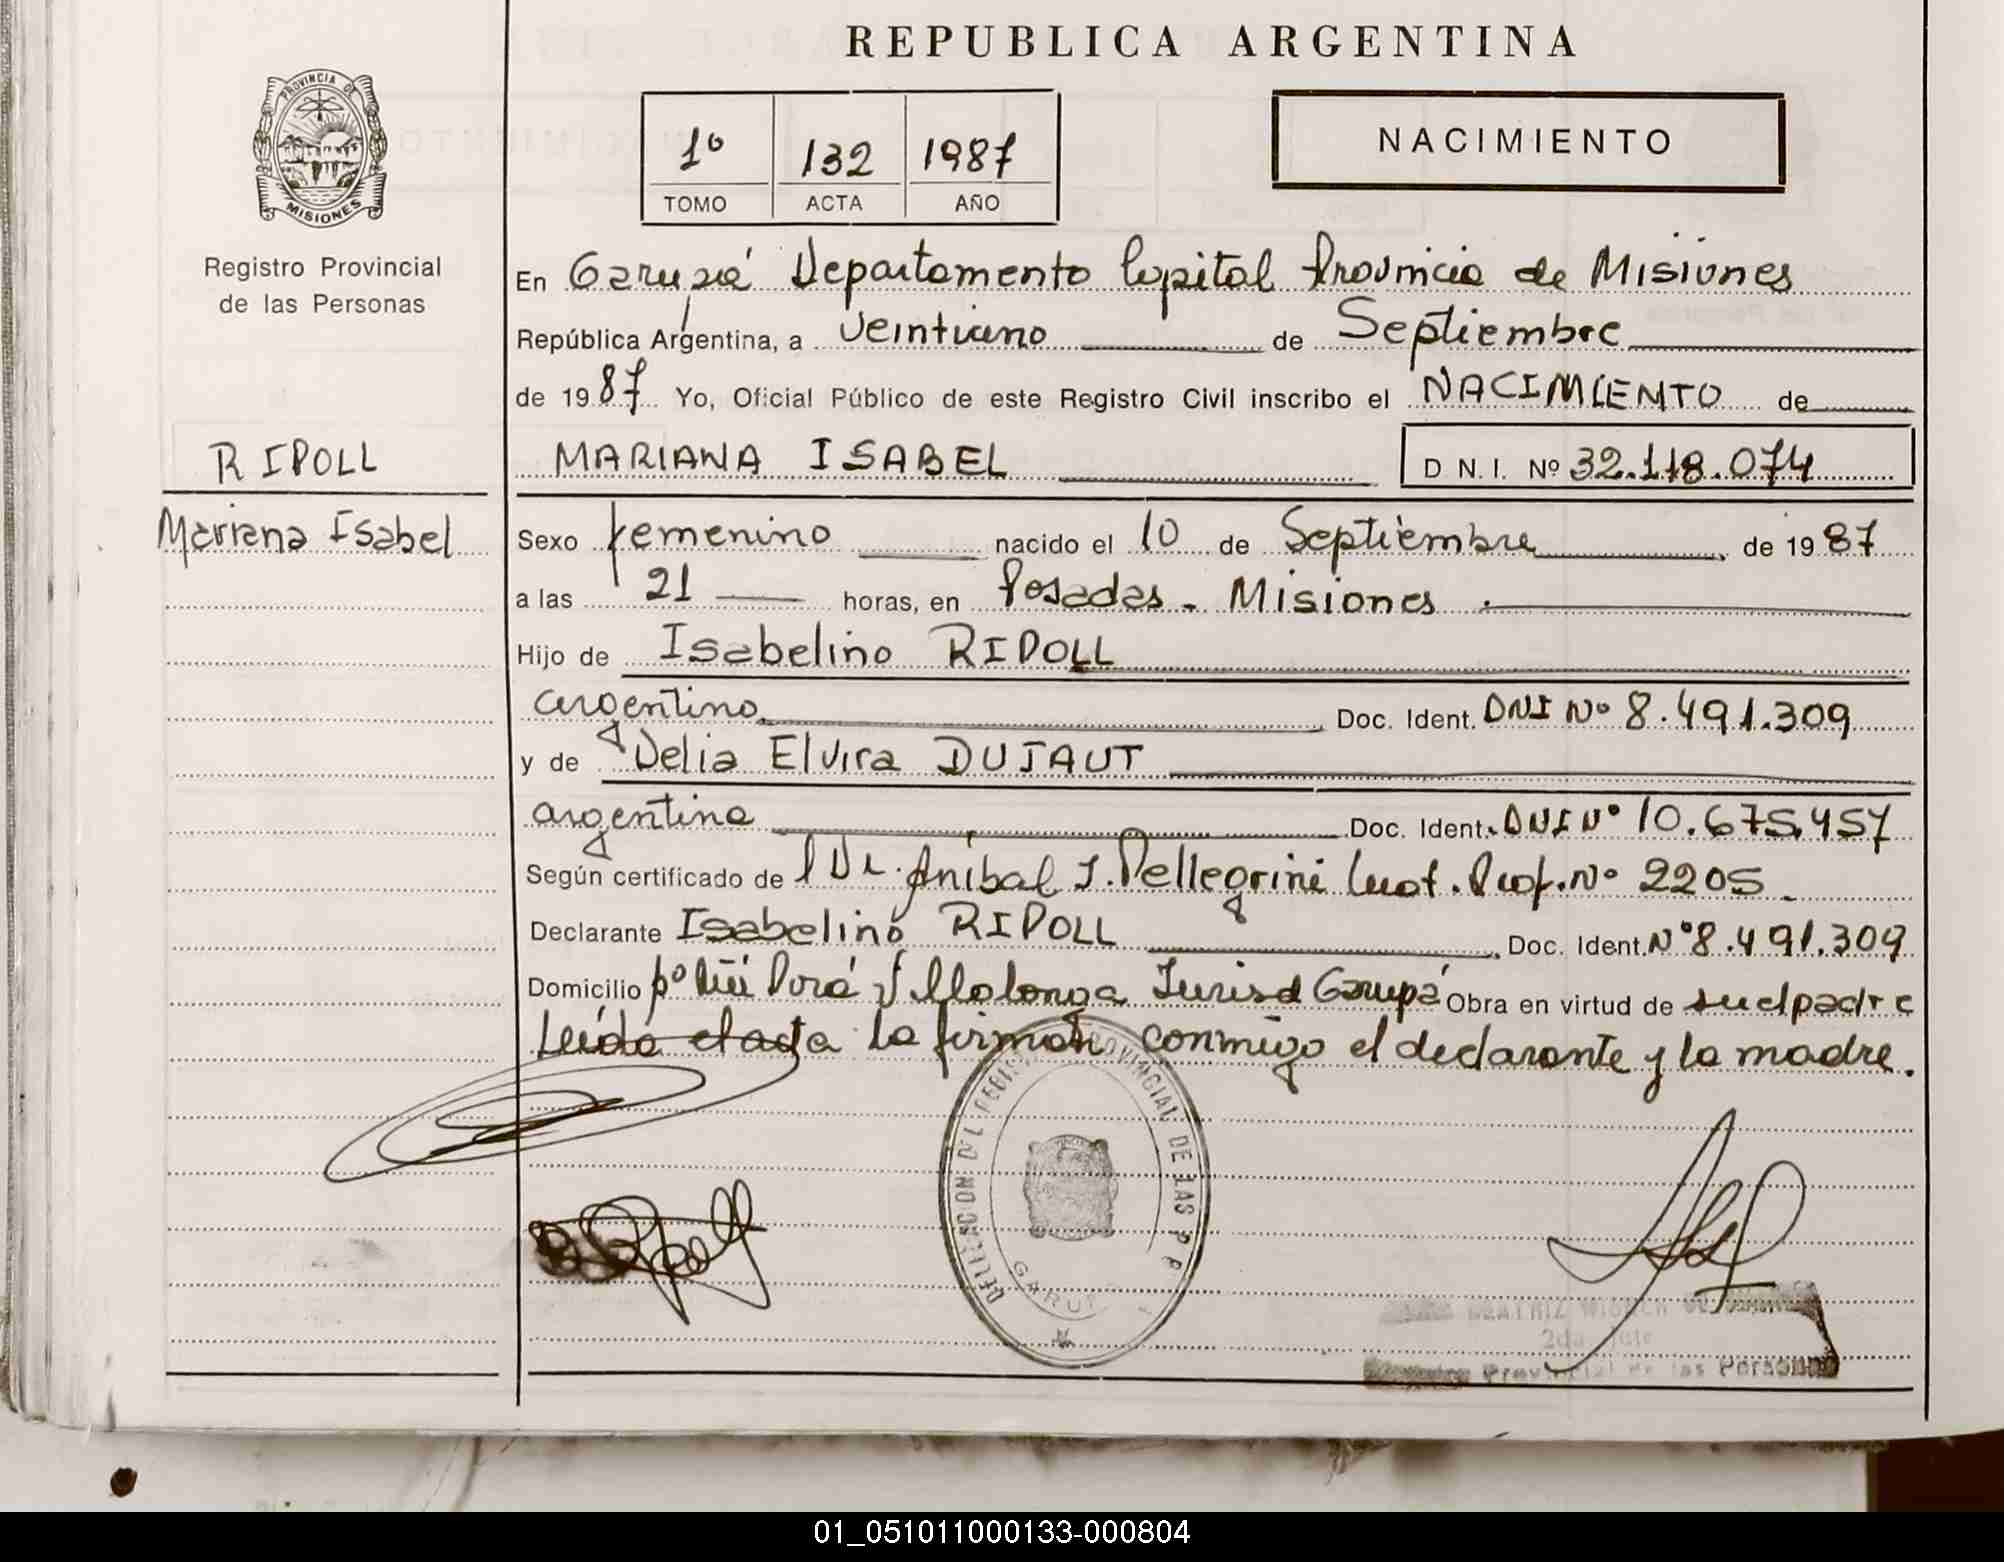 REPUBLICA ARGENTINA
PROVINCIA DE
MISIONES
Registro Provincial
de las Personas
1º 132 1987
TOMO ACTA AÑO
NACIMIENTO
En Garupá Departamento Capital Provincia de Misiones
República Argentina, a veintiuno de Septiembre
de 1987 Yo, Oficial Público de este Registro Civil inscribo el NACIMIENTO de
RIPOLL
MARIANA ISABEL
D N. I. Nº 32.118.074
Mariana Isabel
Sexo femenino nacido el 10 de Septiembre de 1987
a las 21 horas, en Posadas - Misiones.
Hijo de Isabelino RIPOLL
argentino Doc. Ident. DNI Nº 8.491.309
y de Delia Elvira DUJAUT
argentina Doc. Ident. DNI Nº 10.675.457
Según certificado de Dr. Aníbal J. Pellegrini Prof. Nº 2205
Declarante Isabelino RIPOLL Doc. Ident. Nº 8.491.309
Domicilio Porá Villalonga Jurisd Garupá Obra en virtud de su el padre
Leída el acta la firman conmigo el declarante y la madre.
DELEGACION DEL REGISTRO PROVINCIAL DE LAS P P
GARUPA
BEATRIZ
2da. Jefe
Registro Provincial de las Personas
01_051011000133-000804